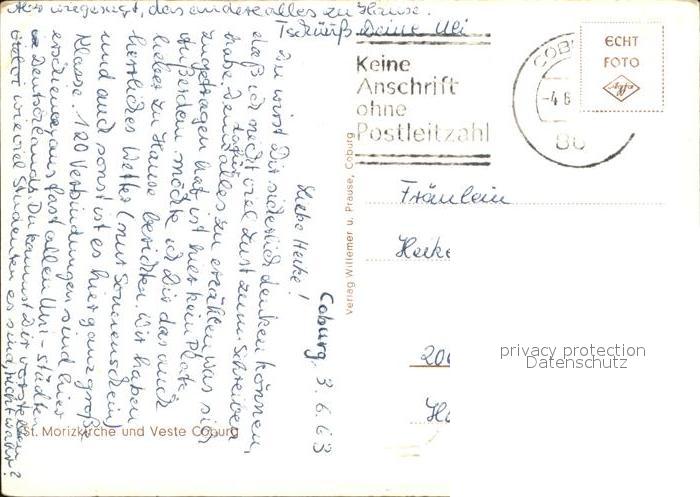 Coburg, 3.6.63
Liebe Heike!
Du wirst Dir sicherlich denken können,
daß ich nicht viel Lust zum Schreiben
habe. Denn alles zu erzählen, was sich
zugetragen hat, ist hier kein Platz,
außerdem möchte ich Dir das auch
lieber zu Hause berichten. Wir haben
herrliches Wetter (nur Sonnenschein)
und auch sonst ist es hier ganz große
Klasse. 120 Verbindungen sind hier
erschienen, aus fast allen Uni-Städten
Deutschlands. Du kannst Dir vorstellen
wieviel Studenten es sind, nicht wahr?
Also wie gesagt, das andere alles zu Hause.
Tschüß Deine Uli
Keine
Anschrift
ohne
Postleitzahl
COB
-4.6
ECHT
FOTO
Agfa
Fräulein
Heike
200
Verlag Willemer u. Presse, Coburg
St. Morizkirche und Veste Coburg
privacy protection
Datenschutz